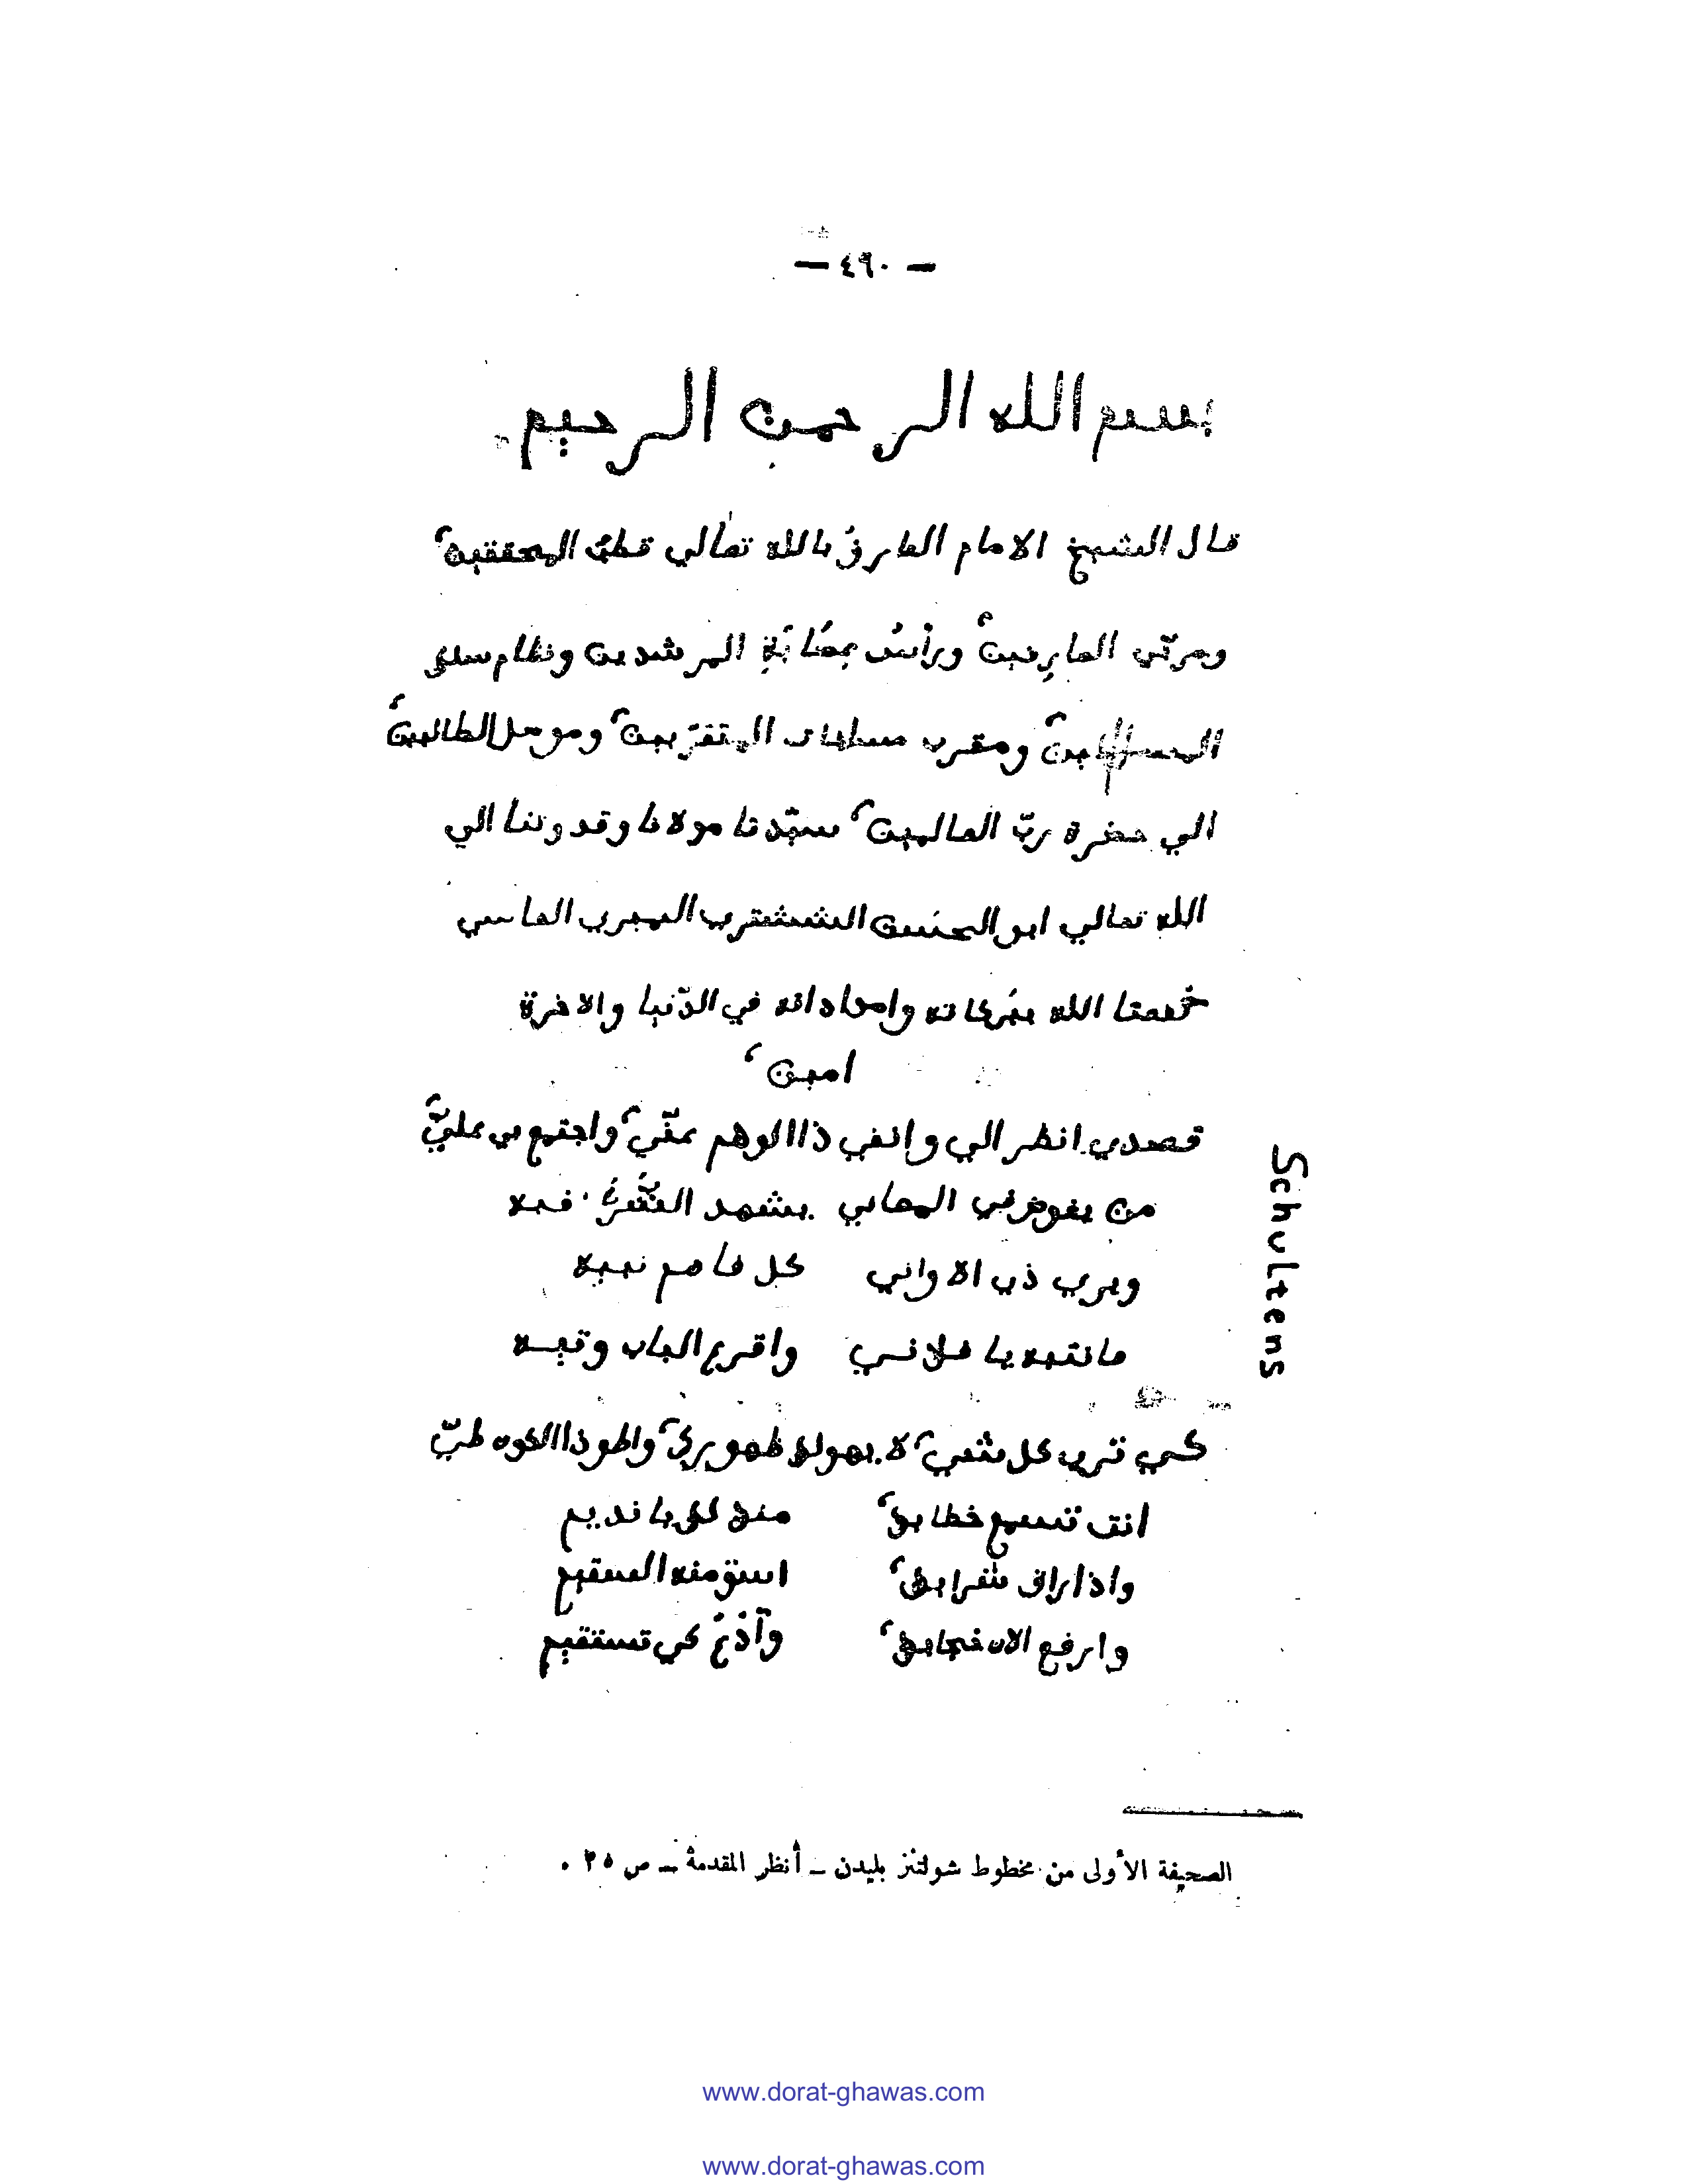 — ٤٩٠ —
بسم الله الرحمن الرحيم
قال الشيخ الامام العارف بالله تعالي قطب المحققين
ومربّي العارفين ورأس عصابة المرشدين ونظام سلك
ومقرب مسافات المتقرّبين وموصل الطالبين
الي حضرة ربّ العالمين سيّدنا مولانا وقدوتنا الي
الله تعالي ابو الحسن الششتري الفاسي
الله ببركاته وامداداته في الدّنيا والاخرة
امين
قصدي انظر الي وانفي ذا الوهم عنّي واجتمع بي عليّ
من يغوص في المعاني يشهد السّرّ فيه
ويري ذي الاواني كل فاهم نبيه
ما نتبه يا فلاني واقرع الباب وتيه
كي تري كل شي لا يهولك ظهوري واطو ذا الكون طيّ
انت تسمع خطابك منك لك يا نديم
واذا راق شرابك اسق منه السقيم
وارفع الان حجابك كي تستقيم
Schultens
الصحيفة الأولى من مخطوط شولتنز بليدن – أنظر المقدمة – ص ٢٥ .
www.dorat-ghawas.com
www.dorat-ghawas.com